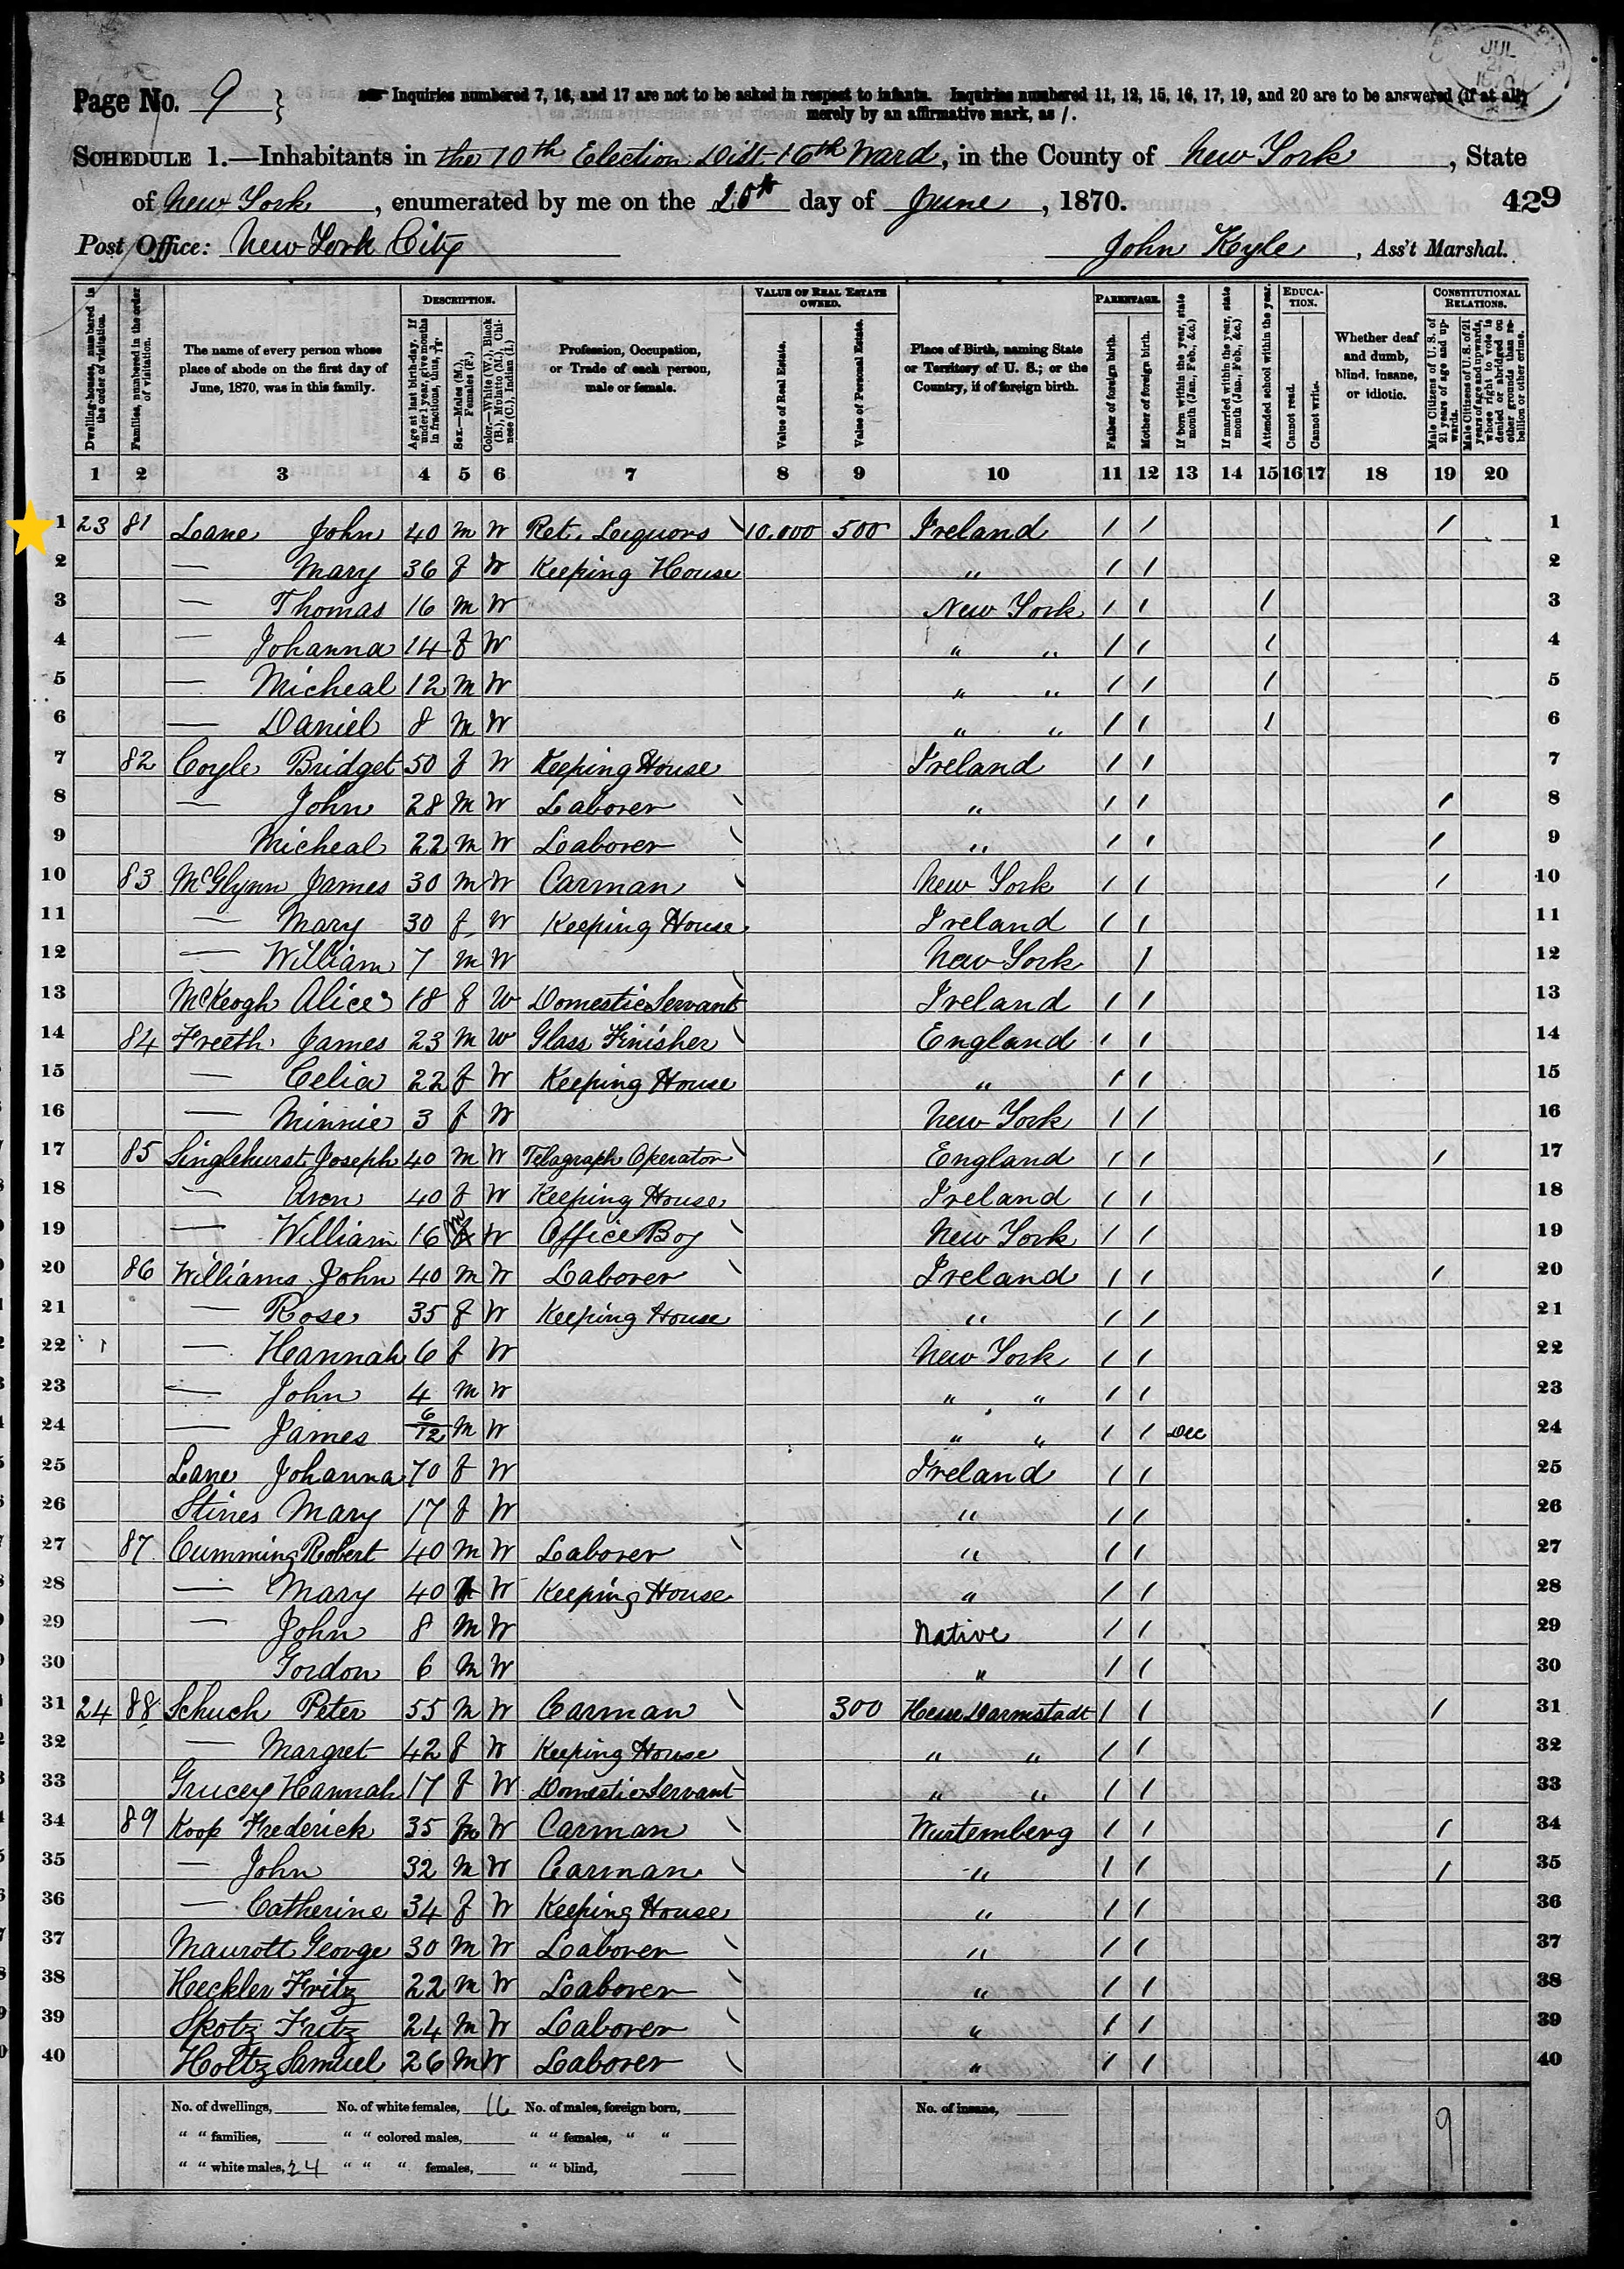 JUL
21
1870
Page No. 9 }
Inquiries numbered 7, 16, and 17 are not to be asked in respect to infants. Inquiries numbered 11, 12, 15, 16, 17, 19, and 20 are to be answered (if at all)
merely by an affirmative mark, as /.
SCHEDULE 1.—Inhabitants in the 10th Election Dist 16th Ward, in the County of New York, State
of New York, enumerated by me on the 20th day of June, 1870.
429
Post Office: New York City
John Kyle, Ass't Marshal.
Dwelling-houses, numbered in the order of visitation.
Families, numbered in the order of visitation.
The name of every person whose place of abode on the first day of June, 1870, was in this family.
DESCRIPTION.
Age at last birth-day. If under 1 year, give months in fractions, thus, 3/12.
Sex.—Males (M.), Females (F.)
Color.—White (W.), Black (B.), Mulatto (M.), Chinese (C.), Indian (I.)
Profession, Occupation, or Trade of each person, male or female.
VALUE OF REAL ESTATE OWNED.
Value of Real Estate.
Value of Personal Estate.
Place of Birth, naming State or Territory of U. S.; or the Country, if of foreign birth.
PARENTAGE.
Father of foreign birth.
Mother of foreign birth.
If born within the year, state month (Jan., Feb., &c.)
If married within the year, state month (Jan., Feb., &c.)
Attended school within the year.
EDUCATION.
Cannot read.
Cannot write.
Whether deaf and dumb, blind, insane, or idiotic.
CONSTITUTIONAL RELATIONS.
Male Citizens of U. S. of 21 years of age and upwards.
Male Citizens of U. S. of 21 years of age and upwards, whose right to vote is denied or abridged on other grounds than rebellion or other crime.
1 2 3 4 5 6 7 8 9 10 11 12 13 14 15 16 17 18 19 20
1 23 81 Lane John 40 m W Ret. Liquors 10.000 500 Ireland / / / 1
2 — Mary 36 f W Keeping House " / / 2
3 — Thomas 16 m W New York / / / 3
4 — Johanna 14 f W " " / / / 4
5 — Micheal 12 m W " " / / / 5
6 — Daniel 8 m W " " / / / 6
7 82 Coyle Bridget 50 f W Keeping House Ireland / / 7
8 — John 28 m W Laborer " / / / 8
9 Micheal 22 m W Laborer " / / / 9
10 83 McGlynn James 30 m W Carman New York / / / 10
11 — Mary 30 f W Keeping House Ireland / / 11
12 — William 7 m W New York / 12
13 McKeogh Alice 18 f W Domestic Servant Ireland / / 13
14 84 Freeth James 23 m W Glass Finisher England / / 14
15 — Celia 22 f W Keeping House " / / 15
16 — Minnie 3 f W New York / / 16
17 85 Singlehurst Joseph 40 m W Telagraph Operator England / / / 17
18 — Ann 40 f W Keeping House Ireland / / 18
19 — William 16 m W Office Boy New York / / 19
20 86 Williams John 40 m W Laborer Ireland / / / 20
21 — Rose 35 f W Keeping House " / / 21
22 — Hannah 6 f W New York / / 22
23 — John 4 m W " " / / 23
24 — James 6/12 m W " " / / Dec 24
25 Lane Johanna 70 f W Ireland / / 25
26 Stines Mary 17 f W " / / 26
27 87 Cumming Robert 40 m W Laborer " / / 27
28 — Mary 40 f W Keeping House " / / 28
29 — John 8 m W Native / / 29
30 Gordon 6 m W " / / 30
31 24 88 Schuch Peter 55 m W Carman 300 Hesse Darmstadt / / / 31
32 — Margret 42 f W Keeping House " " / / 32
33 Grucey Hannah 17 f W Domestic Servant " " / / 33
34 89 Koop Frederick 35 m W Carman Wurtemberg / / / 34
35 — John 32 m W Carman " / / / 35
36 — Catherine 34 f W Keeping House " / / 36
37 Maurott George 30 m W Laborer " / / 37
38 Heckler Fritz 22 m W Laborer " / / 38
39 Skotz Fritz 24 m W Laborer " / / 39
40 Holtz Samuel 26 m W Laborer " / / 40
No. of dwellings, No. of white females, 16 No. of males, foreign born, No. of insane, 9
" " families, " " colored males, " " females, " "
" " white males, 24 " " " females, " " blind,